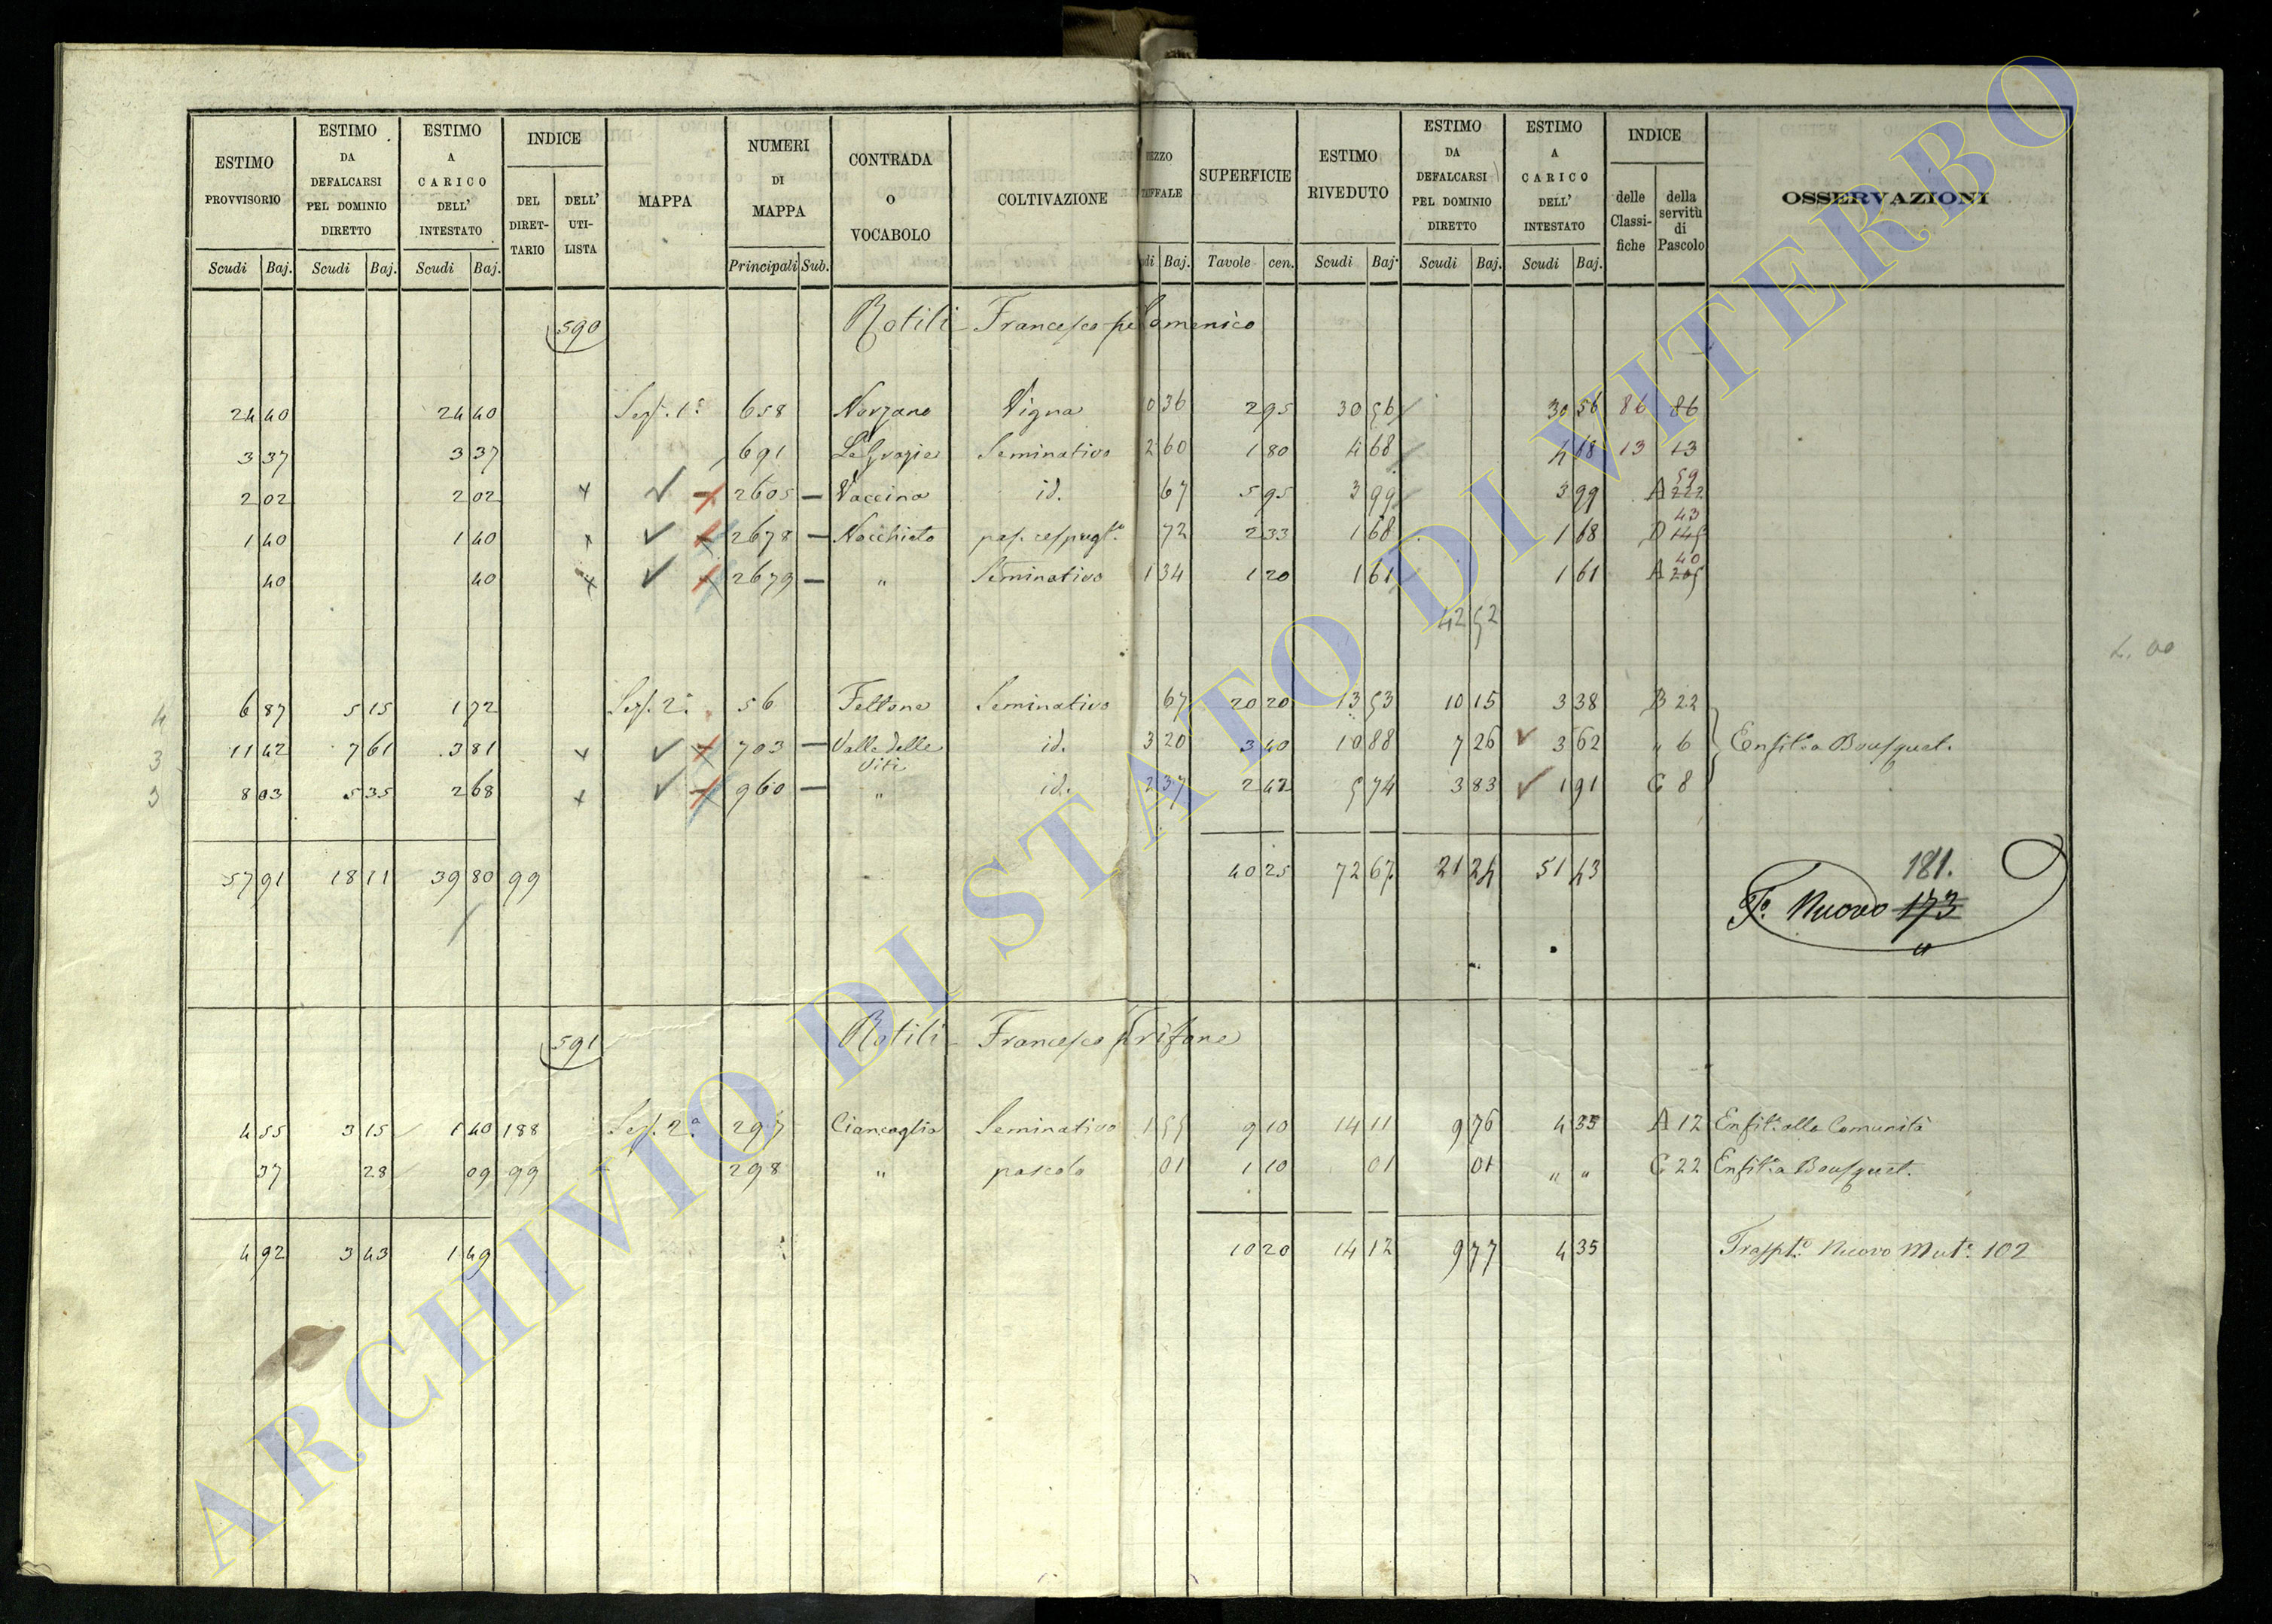 ESTIMO PROVVISORIO Scudi Baj.
ESTIMO DA DEFALCARSI PEL DOMINIO DIRETTO Scudi Baj.
ESTIMO A CARICO DELL' INTESTATO Scudi Baj.
INDICE DEL DIRET-TARIO DELL' UTI-LISTA
MAPPA
NUMERI DI MAPPA Principali Sub.
CONTRADA O VOCABOLO
COLTIVAZIONE
EZZO IFFALE di Baj.
SUPERFICIE Tavole cen.
ESTIMO RIVEDUTO Scudi Baj.
ESTIMO DA DEFALCARSI PEL DOMINIO DIRETTO Scudi Baj.
ESTIMO A CARICO DELL' INTESTATO Scudi Baj.
INDICE delle Classi-fiche della servitù di Pascolo
OSSERVAZIONI
590 Rotili Francesco Domenico
24 40 24 40 Sez. 1ª 658 Norzano Vigna 0 36 2 95 30 56 30 56 86 86
3 37 3 37 691 Le Grazie Seminativo 2 60 1 80 4 68 4 68 13 13
2 02 2 02 2605 — Vaccina id. 67 5 95 3 99 3 99 A 222 59
1 40 1 40 2678 — Nocchieto pas. cespugl.º 72 2 33 1 68 1 68 D 145 43
40 40 2679 — " Seminativo 1 34 1 20 1 61 1 61 A 205 40
42 52
4 6 87 5 15 1 72 Sez. 2ª 56 Feltone Seminativo 67 20 20 13 53 10 15 3 38 B 22
3 11 42 7 61 3 81 703 — Valle delle Viti id. 3 20 3 40 10 88 7 26 3 62 " 6 Enfit. a Bousquet.
3 8 03 5 35 2 68 960 — " id. 2 37 2 42 5 74 3 83 1 91 C 8
57 91 18 11 39 80 99 40 25 72 67 21 24 51 43
181.
Fº. Nuovo 173
591 Rotili Francesco Trifone
4 55 3 15 1 40 188 Sez. 2ª 297 Ciancaglia Seminativo 1 55 9 10 14 11 9 76 4 35 A 12 Enfit. alla Comunità
37 28 09 99 298 " pascolo 01 1 10 01 01 " " C 22 Enfit. a Bousquet.
4 92 3 43 1 49 10 20 14 12 9 77 4 35 Trasptº Nuovo Mutº 102
ARCHIVIO DI STATO DI VITERBO